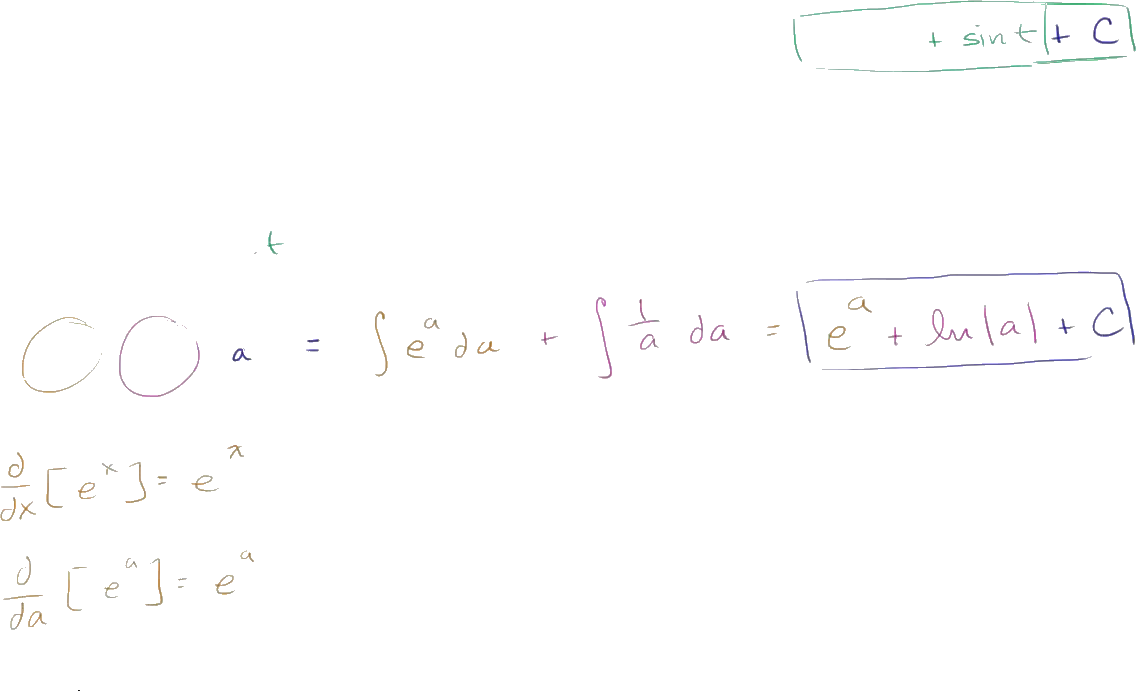 + sin t + C
.t
a = ∫ e^a da + ∫ 1/a da = e^a + ln|a| + C
d/dx [e^x] = e^x
d/da [e^a] = e^a